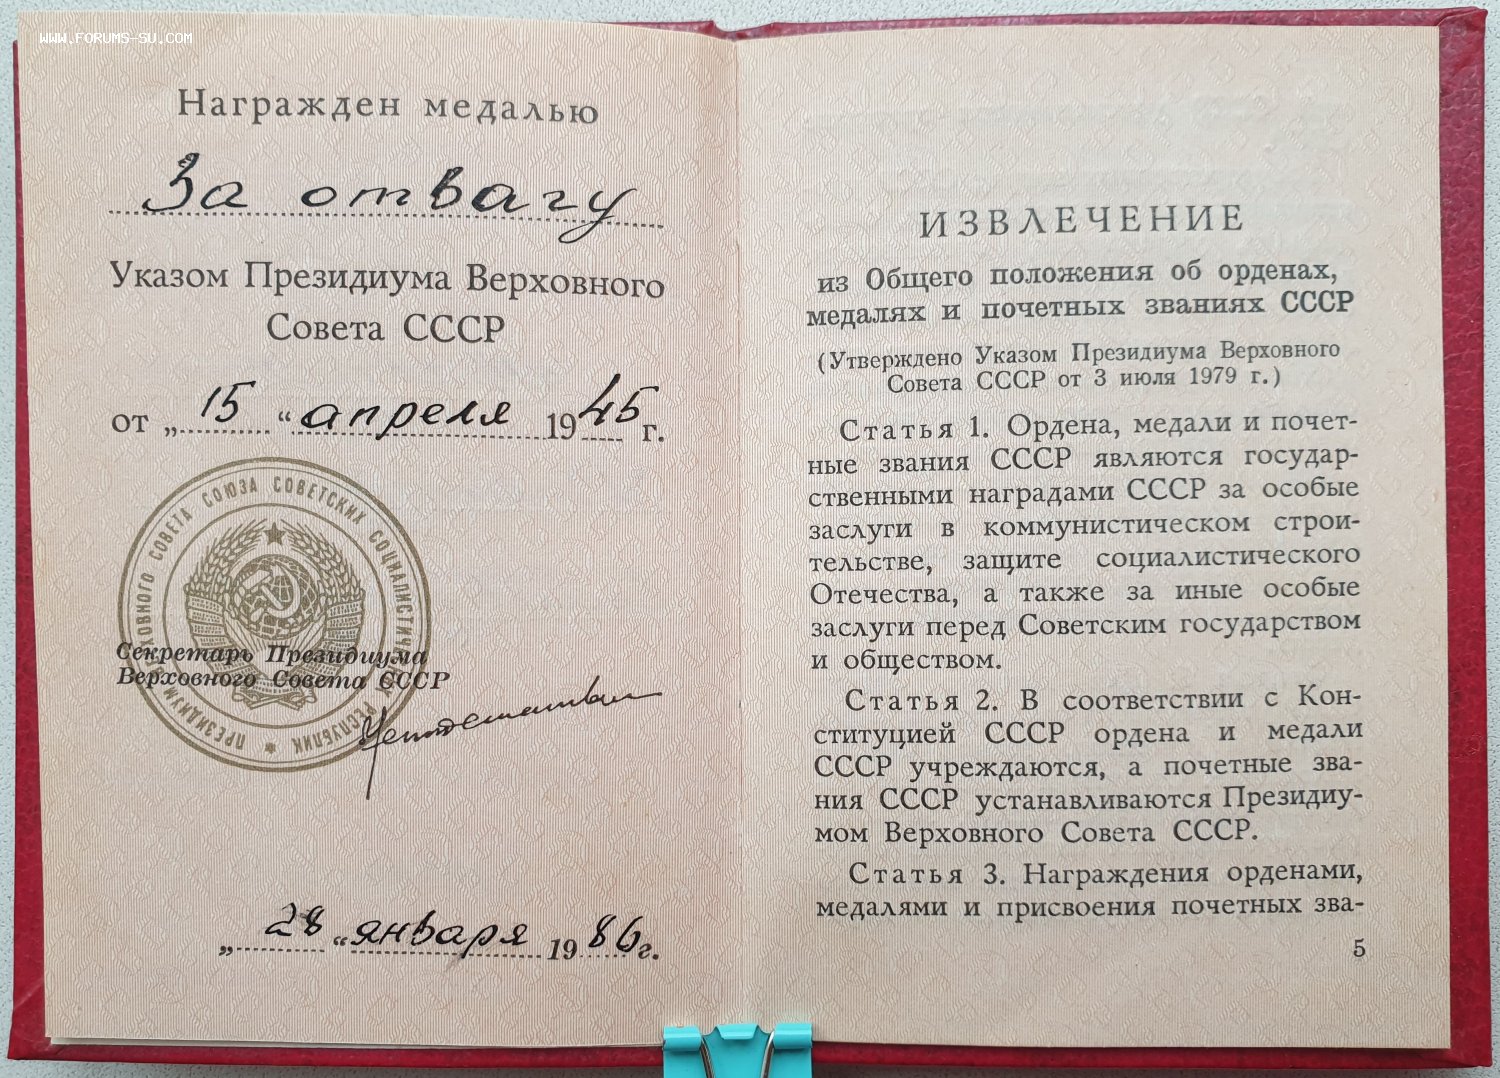 WWW.FORUMS-SU.COM
Награжден медалью
За отвагу
Указом Президиума Верховного
Совета СССР
от „15“ апреля 1945 г.
ПРЕЗИДИУМ ВЕРХОВНОГО СОВЕТА СОЮЗА СОВЕТСКИХ СОЦИАЛИСТИЧЕСКИХ РЕСПУБЛИК
Секретарь Президиума
Верховного Совета СССР
„28“ января 1986 г.
ИЗВЛЕЧЕНИЕ
из Общего положения об орденах,
медалях и почетных званиях СССР
(Утверждено Указом Президиума Верховного
Совета СССР от 3 июля 1979 г.)
Статья 1. Ордена, медали и почет-
ные звания СССР являются государ-
ственными наградами СССР за особые
заслуги в коммунистическом строи-
тельстве, защите социалистического
Отечества, а также за иные особые
заслуги перед Советским государством
и обществом.
Статья 2. В соответствии с Кон-
ституцией СССР ордена и медали
СССР учреждаются, а почетные зва-
ния СССР устанавливаются Президиу-
мом Верховного Совета СССР.
Статья 3. Награждения орденами,
медалями и присвоения почетных зва-
5